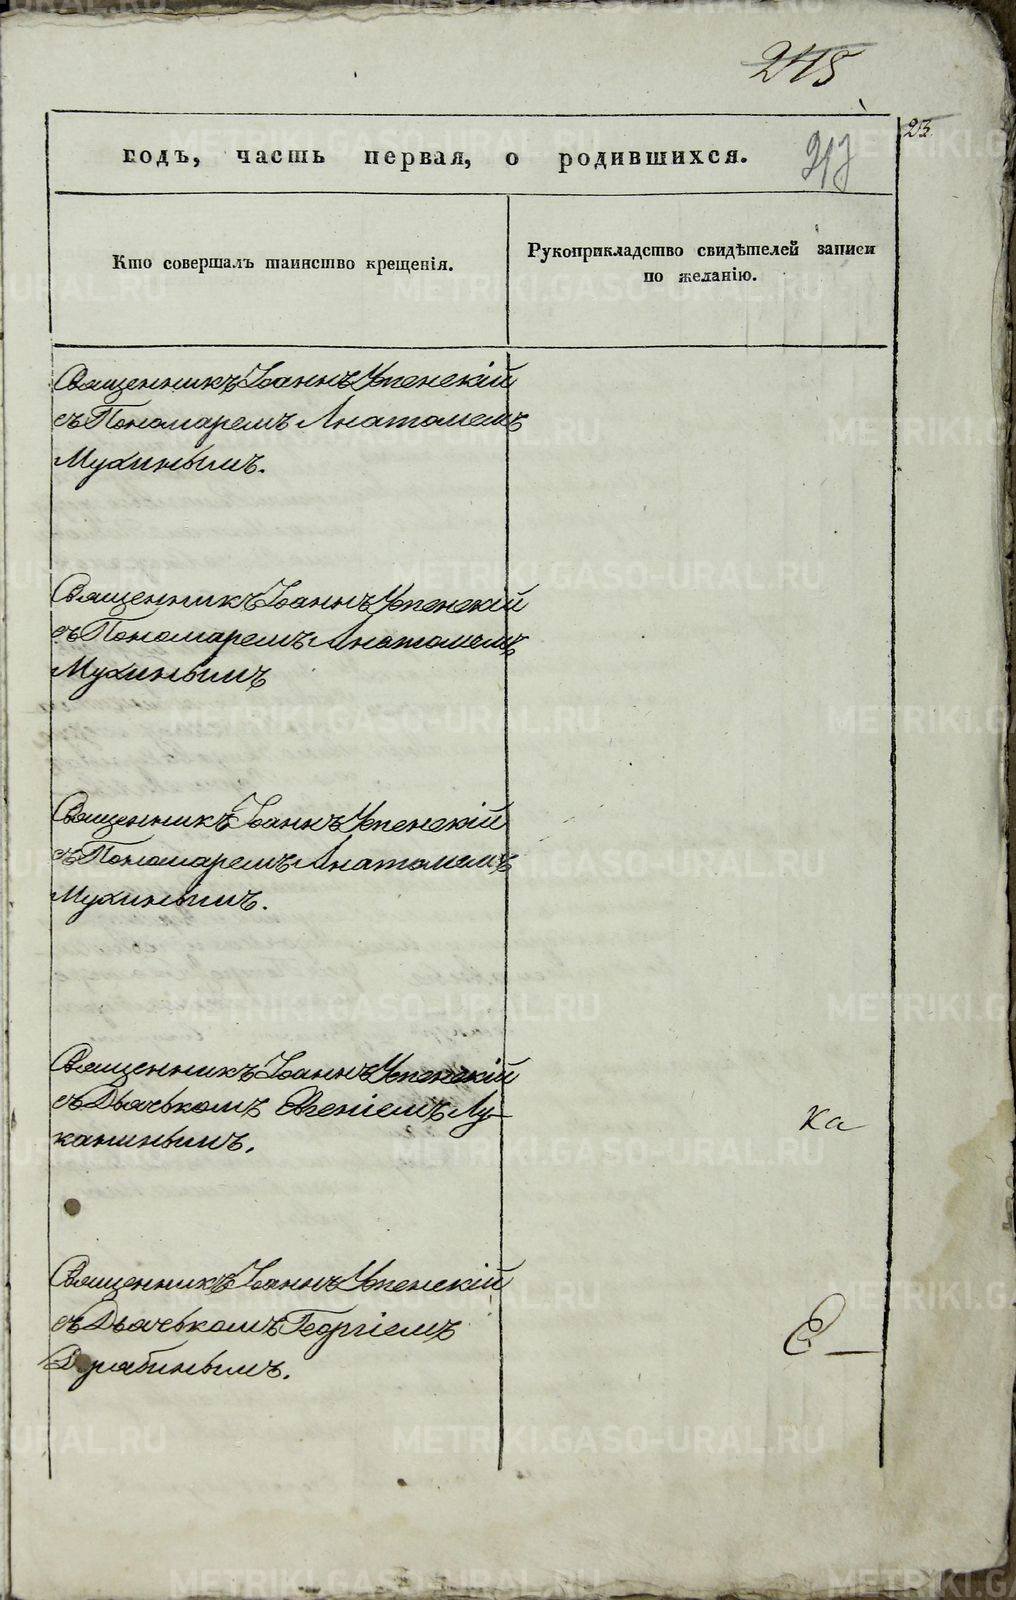 245
23.
годъ, часть первая, о родившихся.
Кто совершалъ таинство крещенія.
Рукоприкладство свидѣтелей записи
по желанію.
Священникъ Іоаннъ Успенскій
съ Пономаремъ Анатоліемъ
Мухинымъ.
Священникъ Іоаннъ Успенскій
съ Пономаремъ Анатоліемъ
Мухинымъ
Священникъ Іоаннъ Успенскій
съ Пономаремъ Анатоліемъ
Мухинымъ.
Священникъ Іоаннъ Успенскій
съ Дьячькомъ Евгеніемъ Лу-
канинымъ.
ка
Священникъ Іоаннъ Успенскій
съ Дьячькомъ Георгіемъ
METRIKI.GASO-URAL.RU